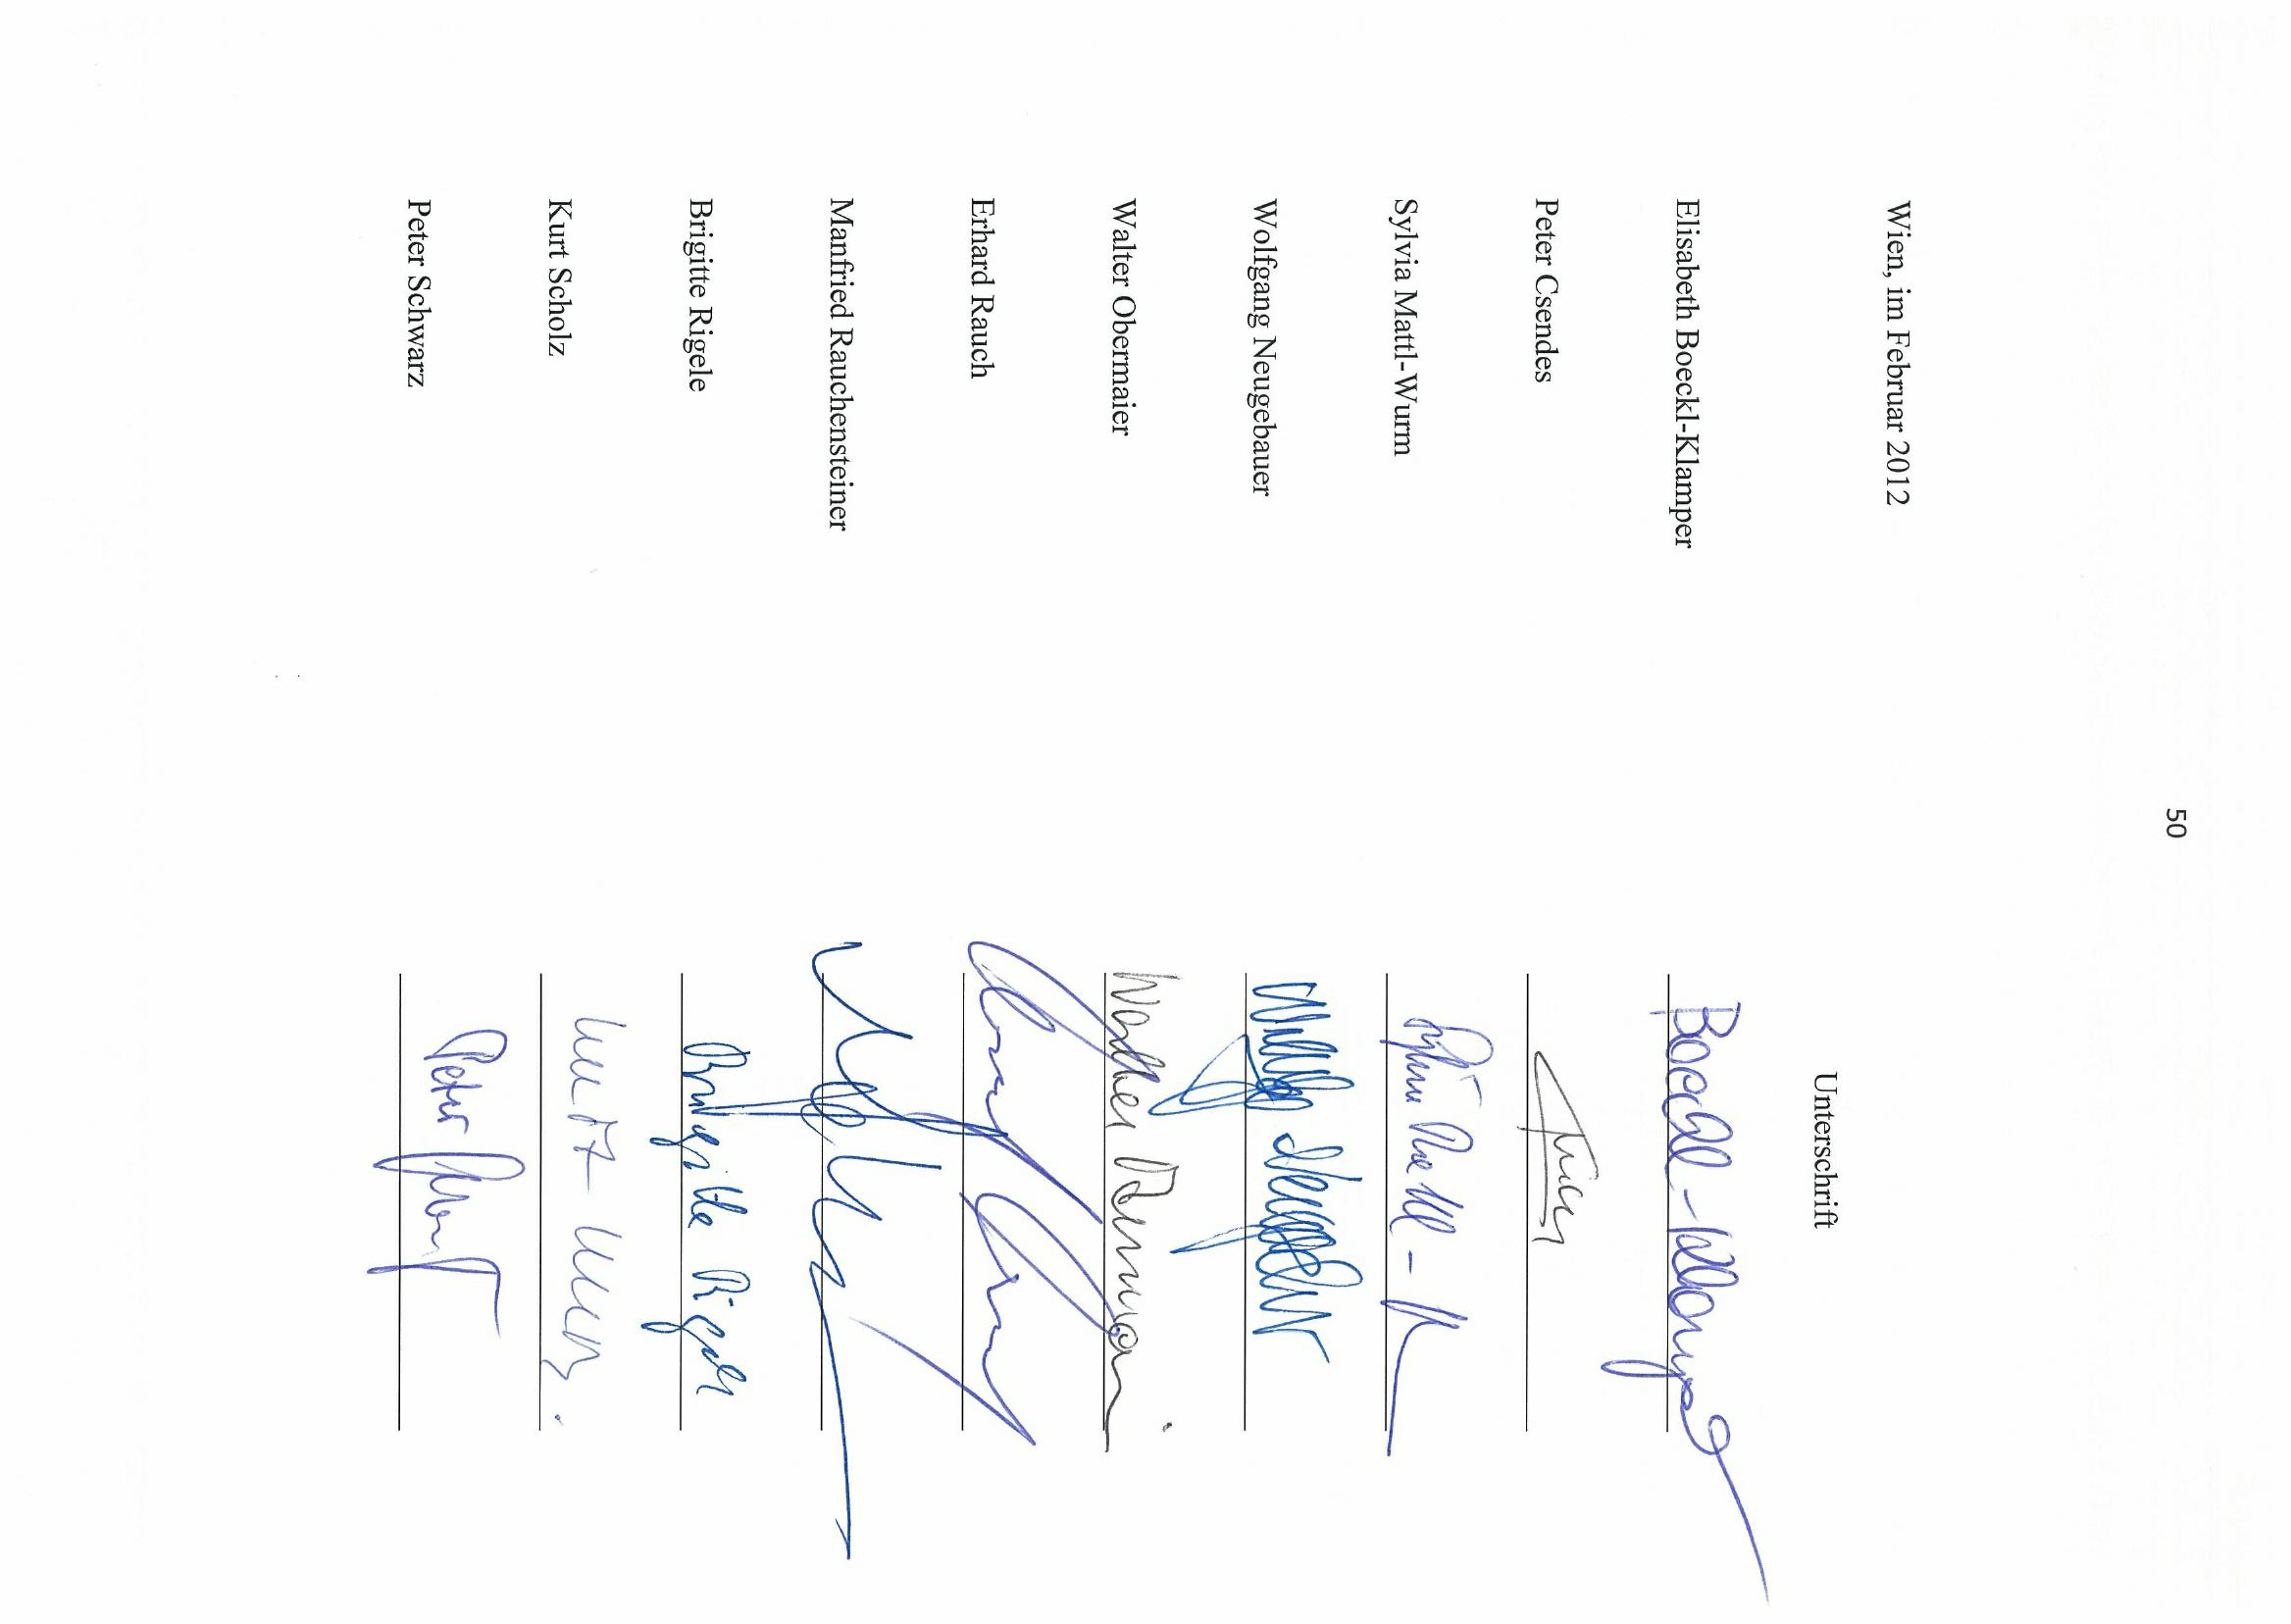 50
Wien, im Februar 2012
Unterschrift
Elisabeth Boeckl-Klamper Boeckl-Klamper
Peter Csendes
Sylvia Mattl-Wurm
Wolfgang Neugebauer
Walter Obermaier Walter Obermaier
Erhard Rauch
Manfried Rauchensteiner
Brigitte Rigele Brigitte Rigele
Kurt Scholz
Peter Schwarz Peter